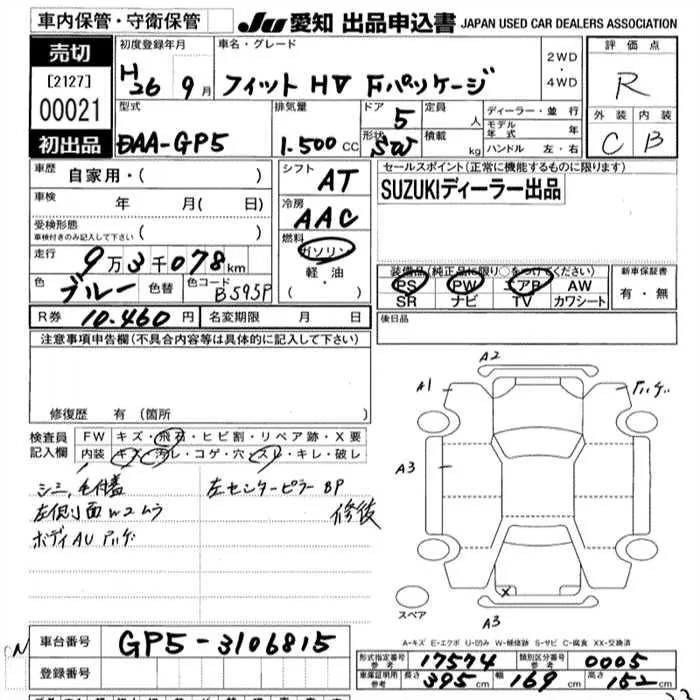 車内保管・守衛保管
JU 愛知 出品申込書 JAPAN USED CAR DEALERS ASSOCIATION
売切
[2127]
00021
初出品
初度登録年月
H26 9月
車名・グレード
フィット HV Fパッケージ
2WD
・
4WD
評価点
R
外装 内装
C B
型式
DAA-GP5
排気量
1.500 CC
ドア 5
形状 SW
定員 人
積載 kg
ディーラー・並行
モデル年式 年
ハンドル 左・右
車歴 自家用・( )
車検 年 月( 日)
受検形態
車検付きのみ記入して下さい ( )
走行 9万3千078km
色 ブルー 色替 色コード B595P
シフト AT
冷房 AAC
燃料
ガソリン
軽・油
( )
セールスポイント(正常に機能するものに限ります)
SUZUKIディーラー出品
装備品(純正品に限り○をつけてください)
PS PW エアB AW
SR ナビ TV カワシート
新車保証書
有・無
R券 10.460円 名変期限 月 日
後日品
注意事項申告欄(不具合内容等は具体的に記入して下さい)
修復歴 有(箇所
検査員
記入欄
FW キズ・飛石・ヒビ割・リペア跡・X要
内装 キズ・汚レ・コゲ・穴・スレ・キレ・破レ
シミ、毛付着
左側面W2ムラ
ボディAU
左センターピラー BP
修後
A2
A1
A3
スペア
X
A3
A-キズ E-エクボ U-凹み W-補修跡 S-サビ C-腐食 XX-交換済
車台番号 GP5-3106815
登録番号
形式指定番号
参考 17574
類別区分番号
参考 0005
車庫証明用
参考
長さ 395cm 幅 169cm 高さ 152cm